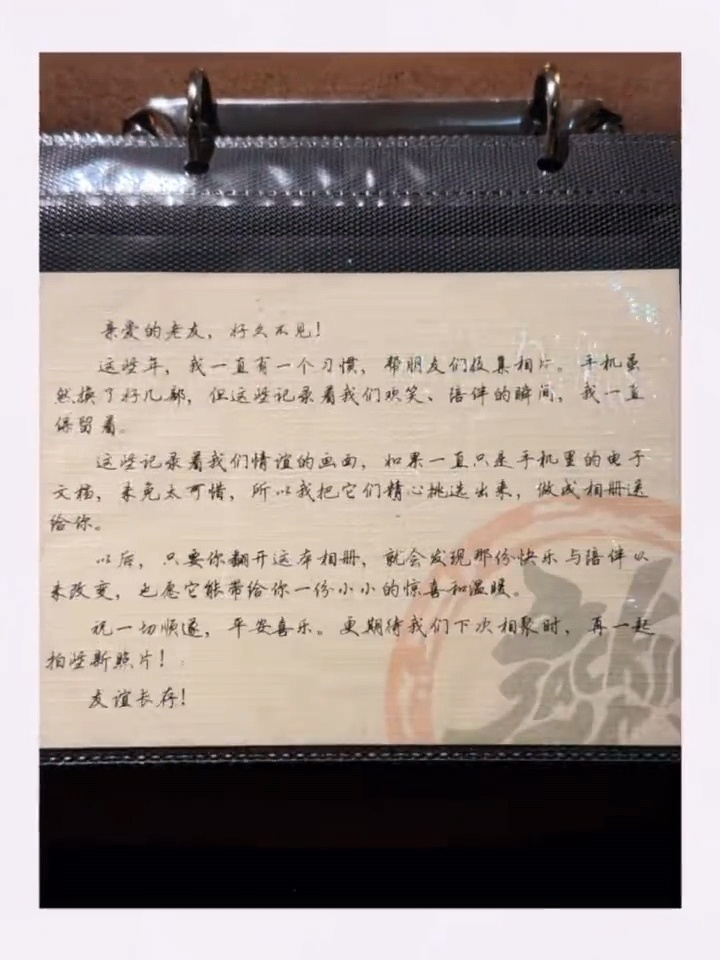 亲爱的老友，好久不见！
这些年，我一直有一个习惯，帮朋友们收集相片。手机虽
然换了好几部，但这些记录着我们欢笑、陪伴的瞬间，我一直
保留着。
这些记录着我们情谊的画面，如果一直只是手机里的电子
文档，未免太可惜，所以我把它们精心挑选出来，做成相册送
给你。
以后，只要你翻开这本相册，就会发现那份快乐与陪伴从
未改变，也愿它能带给你一份小小的惊喜和温暖。
祝一切顺遂，平安喜乐。更期待我们下次相聚时，再一起
拍些新照片！
友谊长存！